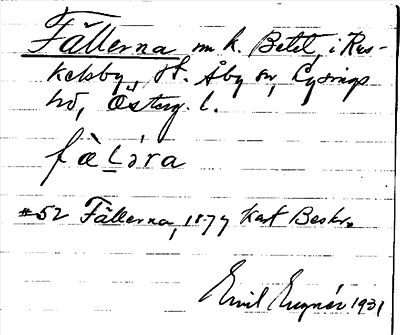 Fällerna nu k. Betel, i Rus-
kelsby, St. Åby sn, Lysings
hd, Östrg. l.
fàL̀ǝra
*52 Fällerna, 1879 Kart Beskr.
Emil 1931